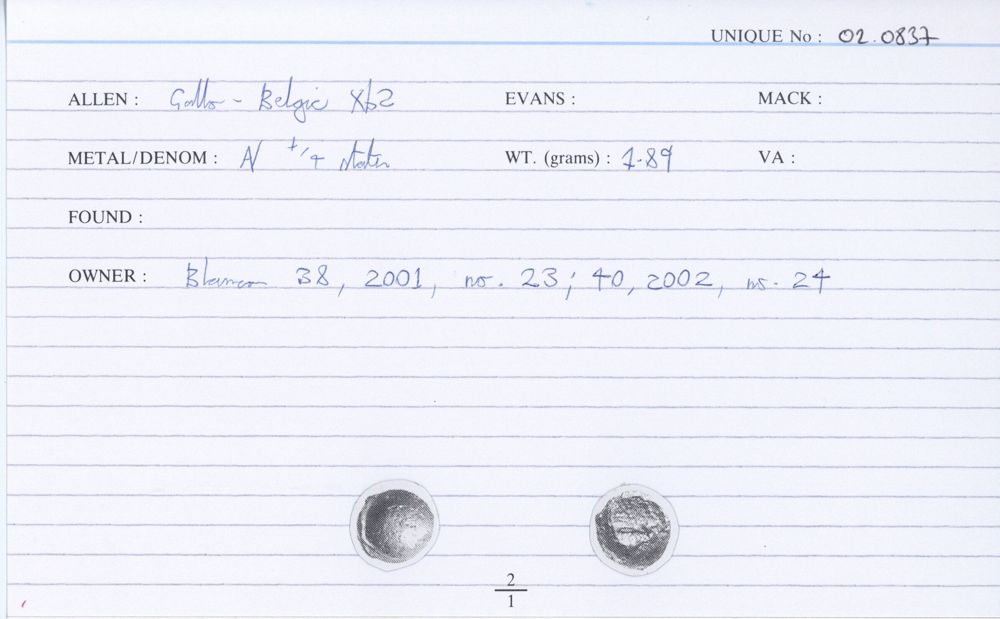 UNIQUE No : 02.0837
ALLEN : Gallo-Belgic Xb2 EVANS : MACK :
METAL/DENOM : AV 1/4 stater WT. (grams) : 1.89 VA :
FOUND :
OWNER : 38, 2001, no. 23; 40, 2002, no. 24
2
1